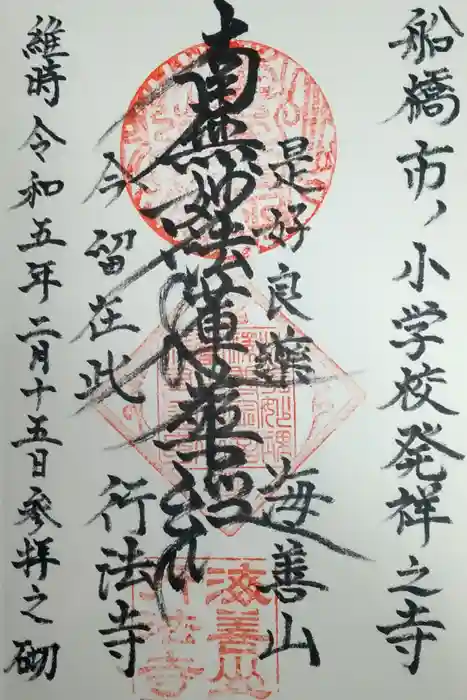 船橋市ノ小学校発祥之寺
是好良藥
海善山
南無妙法蓮華経
今留在此
行法寺
維時令和五年二月十五日参拝之砌
海善山
行法寺